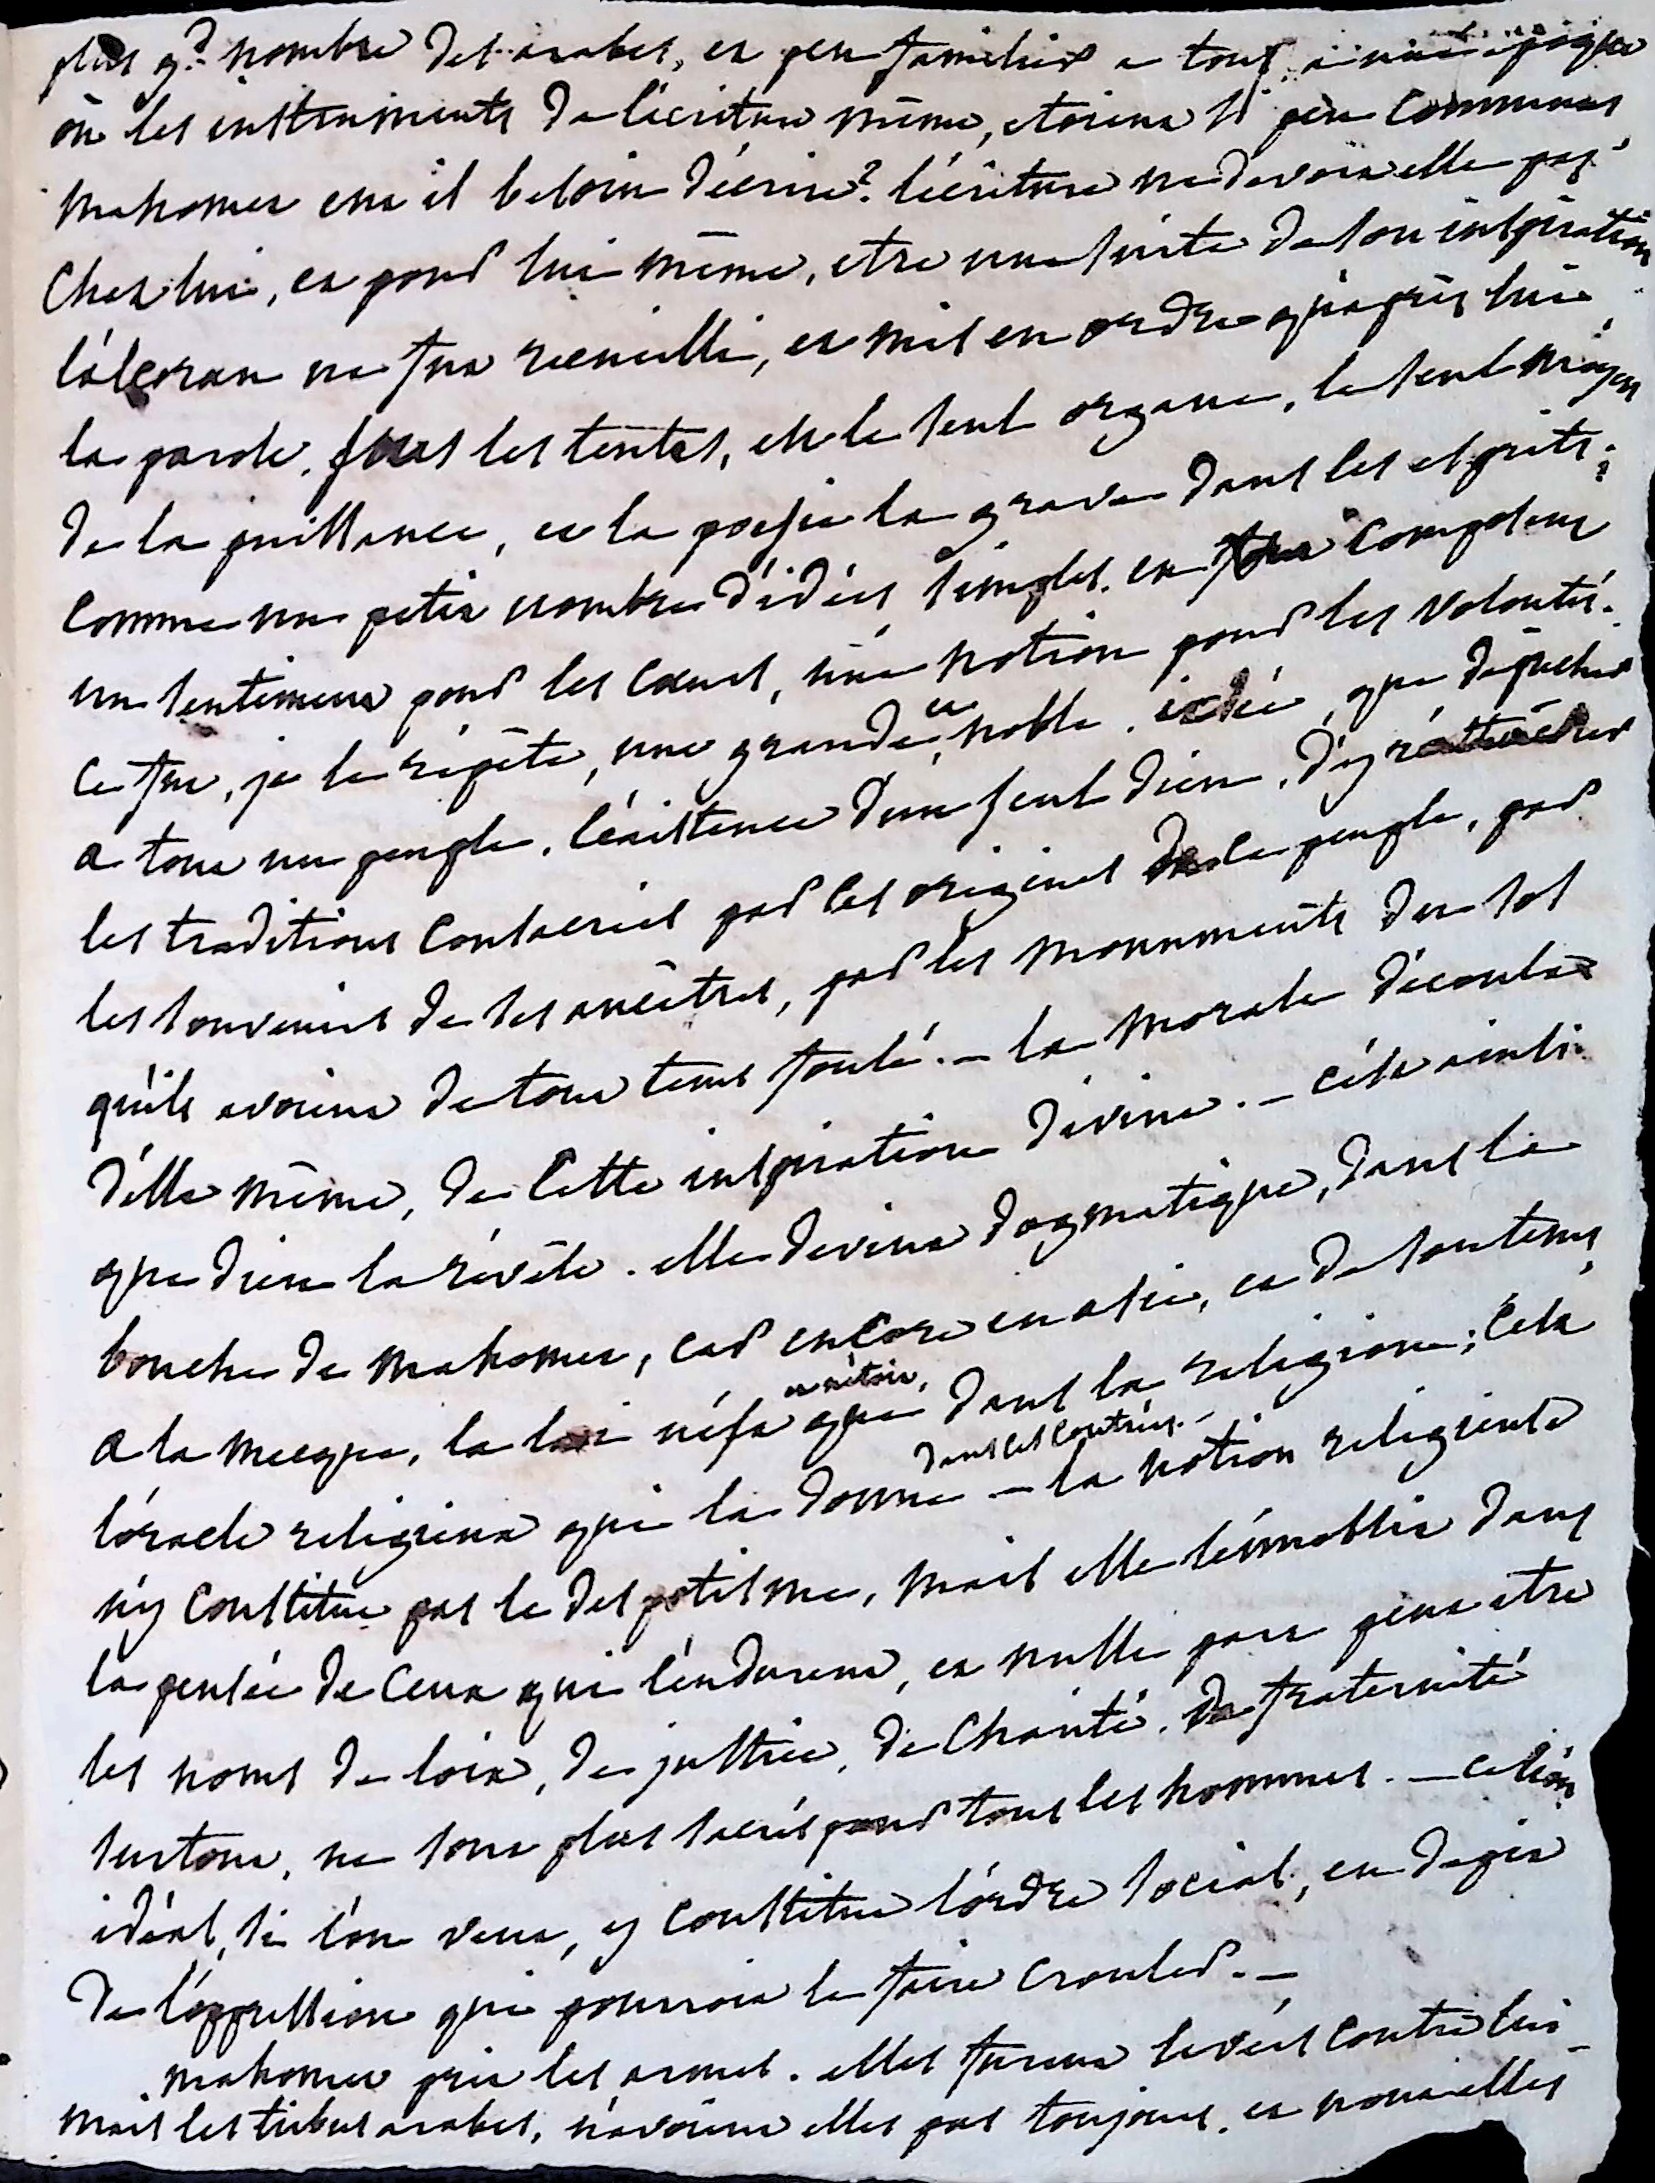 plus gd nombre des arabes, et peu familier a tous, a une époque
où les instruments de l'écriture même, etoient si peu communs
mahomet eut il besoin d'écrire? l'écriture ne devoit elle pas
chez lui, et pour lui même, etre une suite de son inspiration
l'alcoran ne fut recueilli, et mis en ordre qu'après lui
la parole, sous les tentes, est le seul organe, le seul moyen
de la puissance, et la poësie la grave dans les esprits;
comme un petit nombre d'idées simples, en composent
un sentiment pour les cœurs, une notion pour les volontés.
ce fut, je le répète, une grande et noble idée, que de prêcher
a tout un peuple, l'existence d'un seul dieu, d'y rattacher
les traditions consacrées par les origines de ce peuple, par
les souvenirs de ses ancêtres, par les monuments du sol
qu'ils avoient de tout tems foulé. – la morale découla
d'elle même, de cette inspiration divine. – c'est ainsi
que dieu la révèle. elle devint dogmatique, dans la
bouche de mahomet, car encore en asie, et de son tems,
a la mecque, la loi n'est et n'étoit, que dans la religion; c'est
l'oracle religieux qui la donne – dans ces contrées. – la notion religieuse
n'y constitue pas le despotisme, mais elle l'ennoblit dans
la pensée de ceux qui l'endurent, et nulle part peut etre
les noms de loix, de justice, de charité, de fraternité
surtout, ne sont plus sacrés pour tous les hommes. – ce lien
idéal, si l'on veut, y constitue l'ordre social, en dépit
de l'oppression qui pourroit le faire crouler. –
mahomet prit les armes. elles furent levées contre lui –
mais les tribus arabes, n'avoient elles pas toujours, et n'ont elles